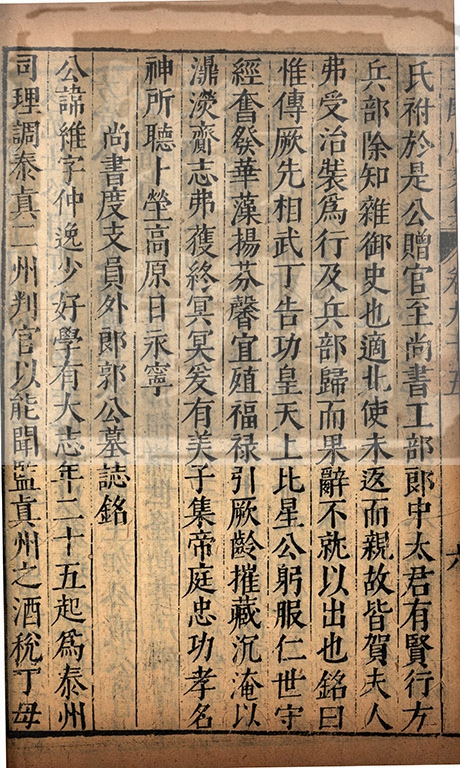 氏祔於是公贈官至尚書工部郎中太君有賢行方
兵部除知雜御史也適北使未返而親故皆賀夫人
弗受治裝為行及兵部歸而果辭不就以出也銘曰
惟傳厥先相武丁告功皇天上比星公躬服仁世守
經奮發華藻揚芬馨宜殖福祿引厥齡摧藏沉淹以
濎濙齎志弗獲終冥冥爰有美子集帝庭忠功孝名
神所聽卜塋高原日永寧
尚書度支員外郎郭公墓誌銘
公諱維字仲逸少好學有大志年二十五起為泰州
司理調泰真二州判官以能聞監真州之酒稅丁母